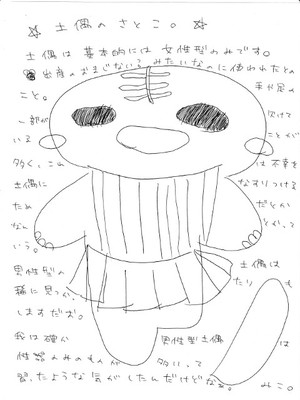 ☆土偶のさとこ。☆
土偶は基本的には女性型のみです。
出産のおまじない？みたいなのに使われたとの
こと。 手や足の
一部が 欠けて
いる ことが
多く、この は不幸を
土偶に なすりつける
ため だとか
なん とかって
いう。
男性型の 土偶は
稀に見つか たり も
しますだお。
我は確か 男性型土偶 は
性器のみのもんが 多いって
習ったような気がしたんだけどなぁ。 みこ。